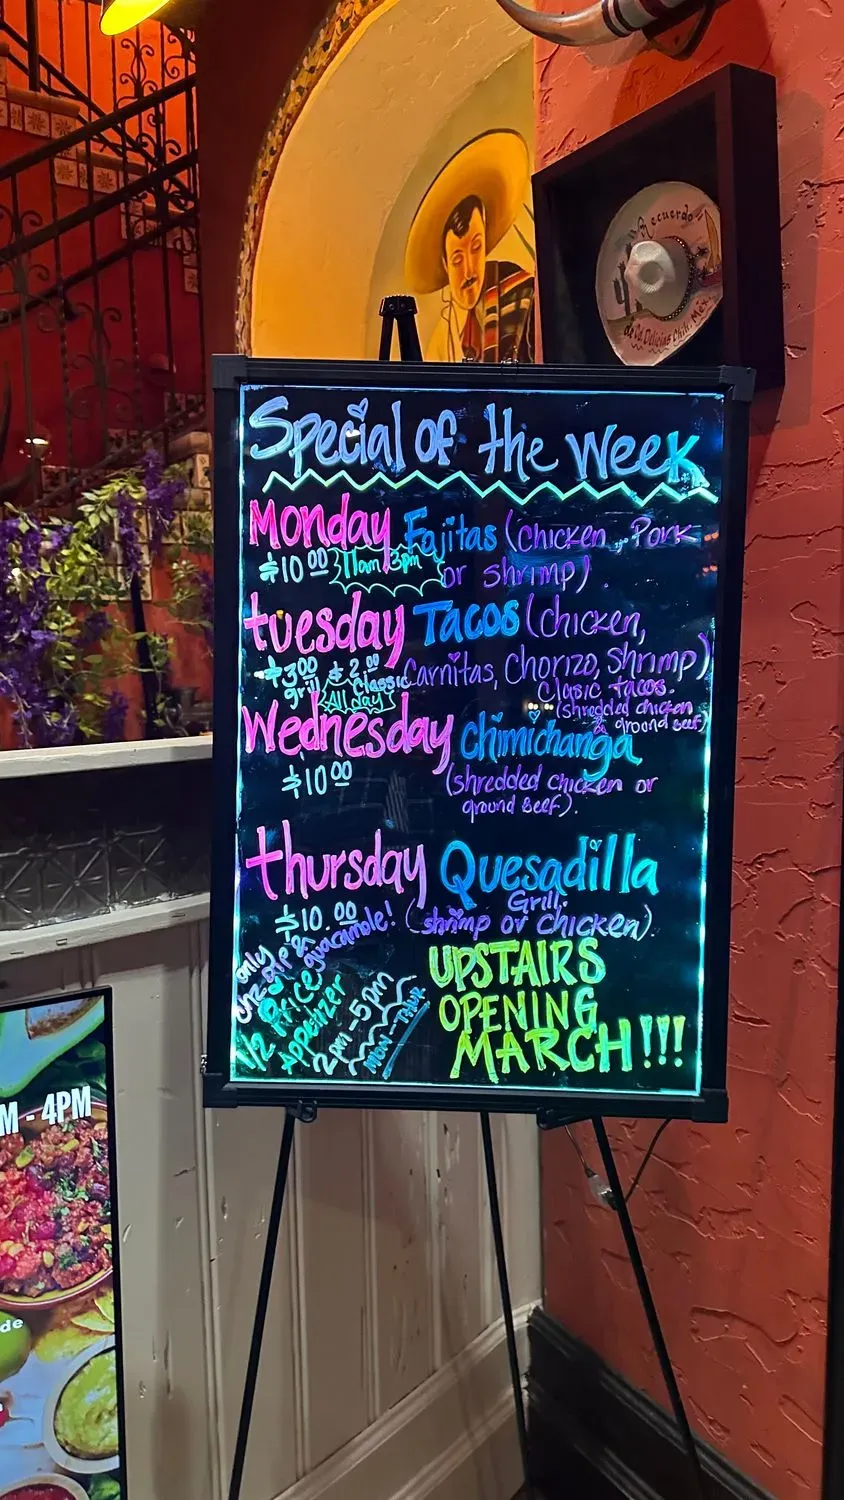 Recuerdo
de Cd. Delicias Chih. Méx.
Special of the Week
Monday Fajitas (chicken, Pork
$10.00 11am-3pm or shrimp).
tuesday Tacos (chicken,
$3.00 $2.00 Carnitas, Chorizo, Shrimp)
grill classic Clasic tacos.
All day (shredded chicken
& ground beef)
Wednesday chimichanga
$10.00 (shredded chicken or
ground beef).
thursday Quesadilla
Grill.
$10.00 (shrimp or chicken).
only
guacamole!
1/2 Price
Appetizer
2pm-5pm
MON-THUR
UPSTAIRS
OPENING
MARCH!!!
M - 4PM
de